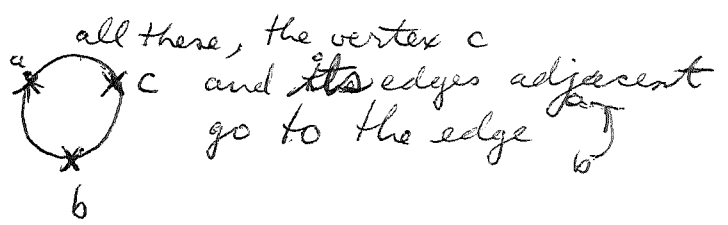 all these, the vertex c
a
c and its edges adjacent
go to the edge a b
b